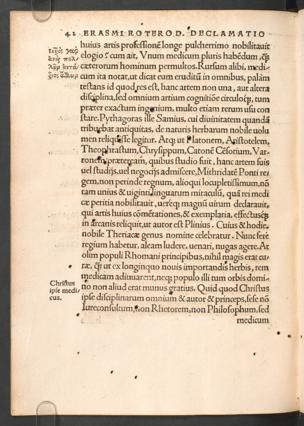 42 ERASMI ROTEROD. DECLAMATIO
huius artis professionē longe pulcherrimo nobilitauit
elogio: cum ait, Vnum medicum pluris habēdum, q̄
cæterorum hominum permultos. Rursum alibi, medi-
cum ita notat, ut dicat eum eruditū in omnibus, palàm
testans id quod res est, hanc artem non una, aut altera
disciplina, sed omnium artium cognitiōe circuloq;, tum
præter exactum ingenium, multo etiam rerum usu con
stare. Pythagoras ille Samius, cui diuinitatem quandā
tribuebat antiquitas, de naturis herbarum nobile uolu
men reliquisse legitur. Atq; ut Platonem, Aristotelem,
Theophrastum, Chrysippum, Catonē Cēsorium, Var-
ronem prætereàm, quibus studio fuit, hanc artem suis
uel studijs, uel negocijs admiscere, Mithridatē Ponti re
gem, non perinde regnum, alioqui locupletissimum, nō
tam unius & uiginti linguarum miraculū, quàm rei medi
cæ peritia nobilitauit, uereq; magnū uirum declarauit,
qui artis huius cōmētationes, & exemplaria, effectusq;
in arcanis reliquit, ut autor est Plinius. Cuius & hodie,
nobile Theriacæ genus nomine celebratur. Nunc fere
regium habetur, aleam ludere, uenari, nugas agere. At
olim populi Rhomani principibus, nihil magis erat cu-
ræ, q̄ ut ex longinquo nouis importandis herbis, rem
medicam adiuuarent, neq; populo illi tum orbis domi-
no non aliud erat munus gratius. Quid quod Christus
ipse disciplinarum omnium & autor & princeps, sese nō
Iureconsultum, non Rhetorem, non Philosophum, sed
medicum
Christus
ipse medi
cus.